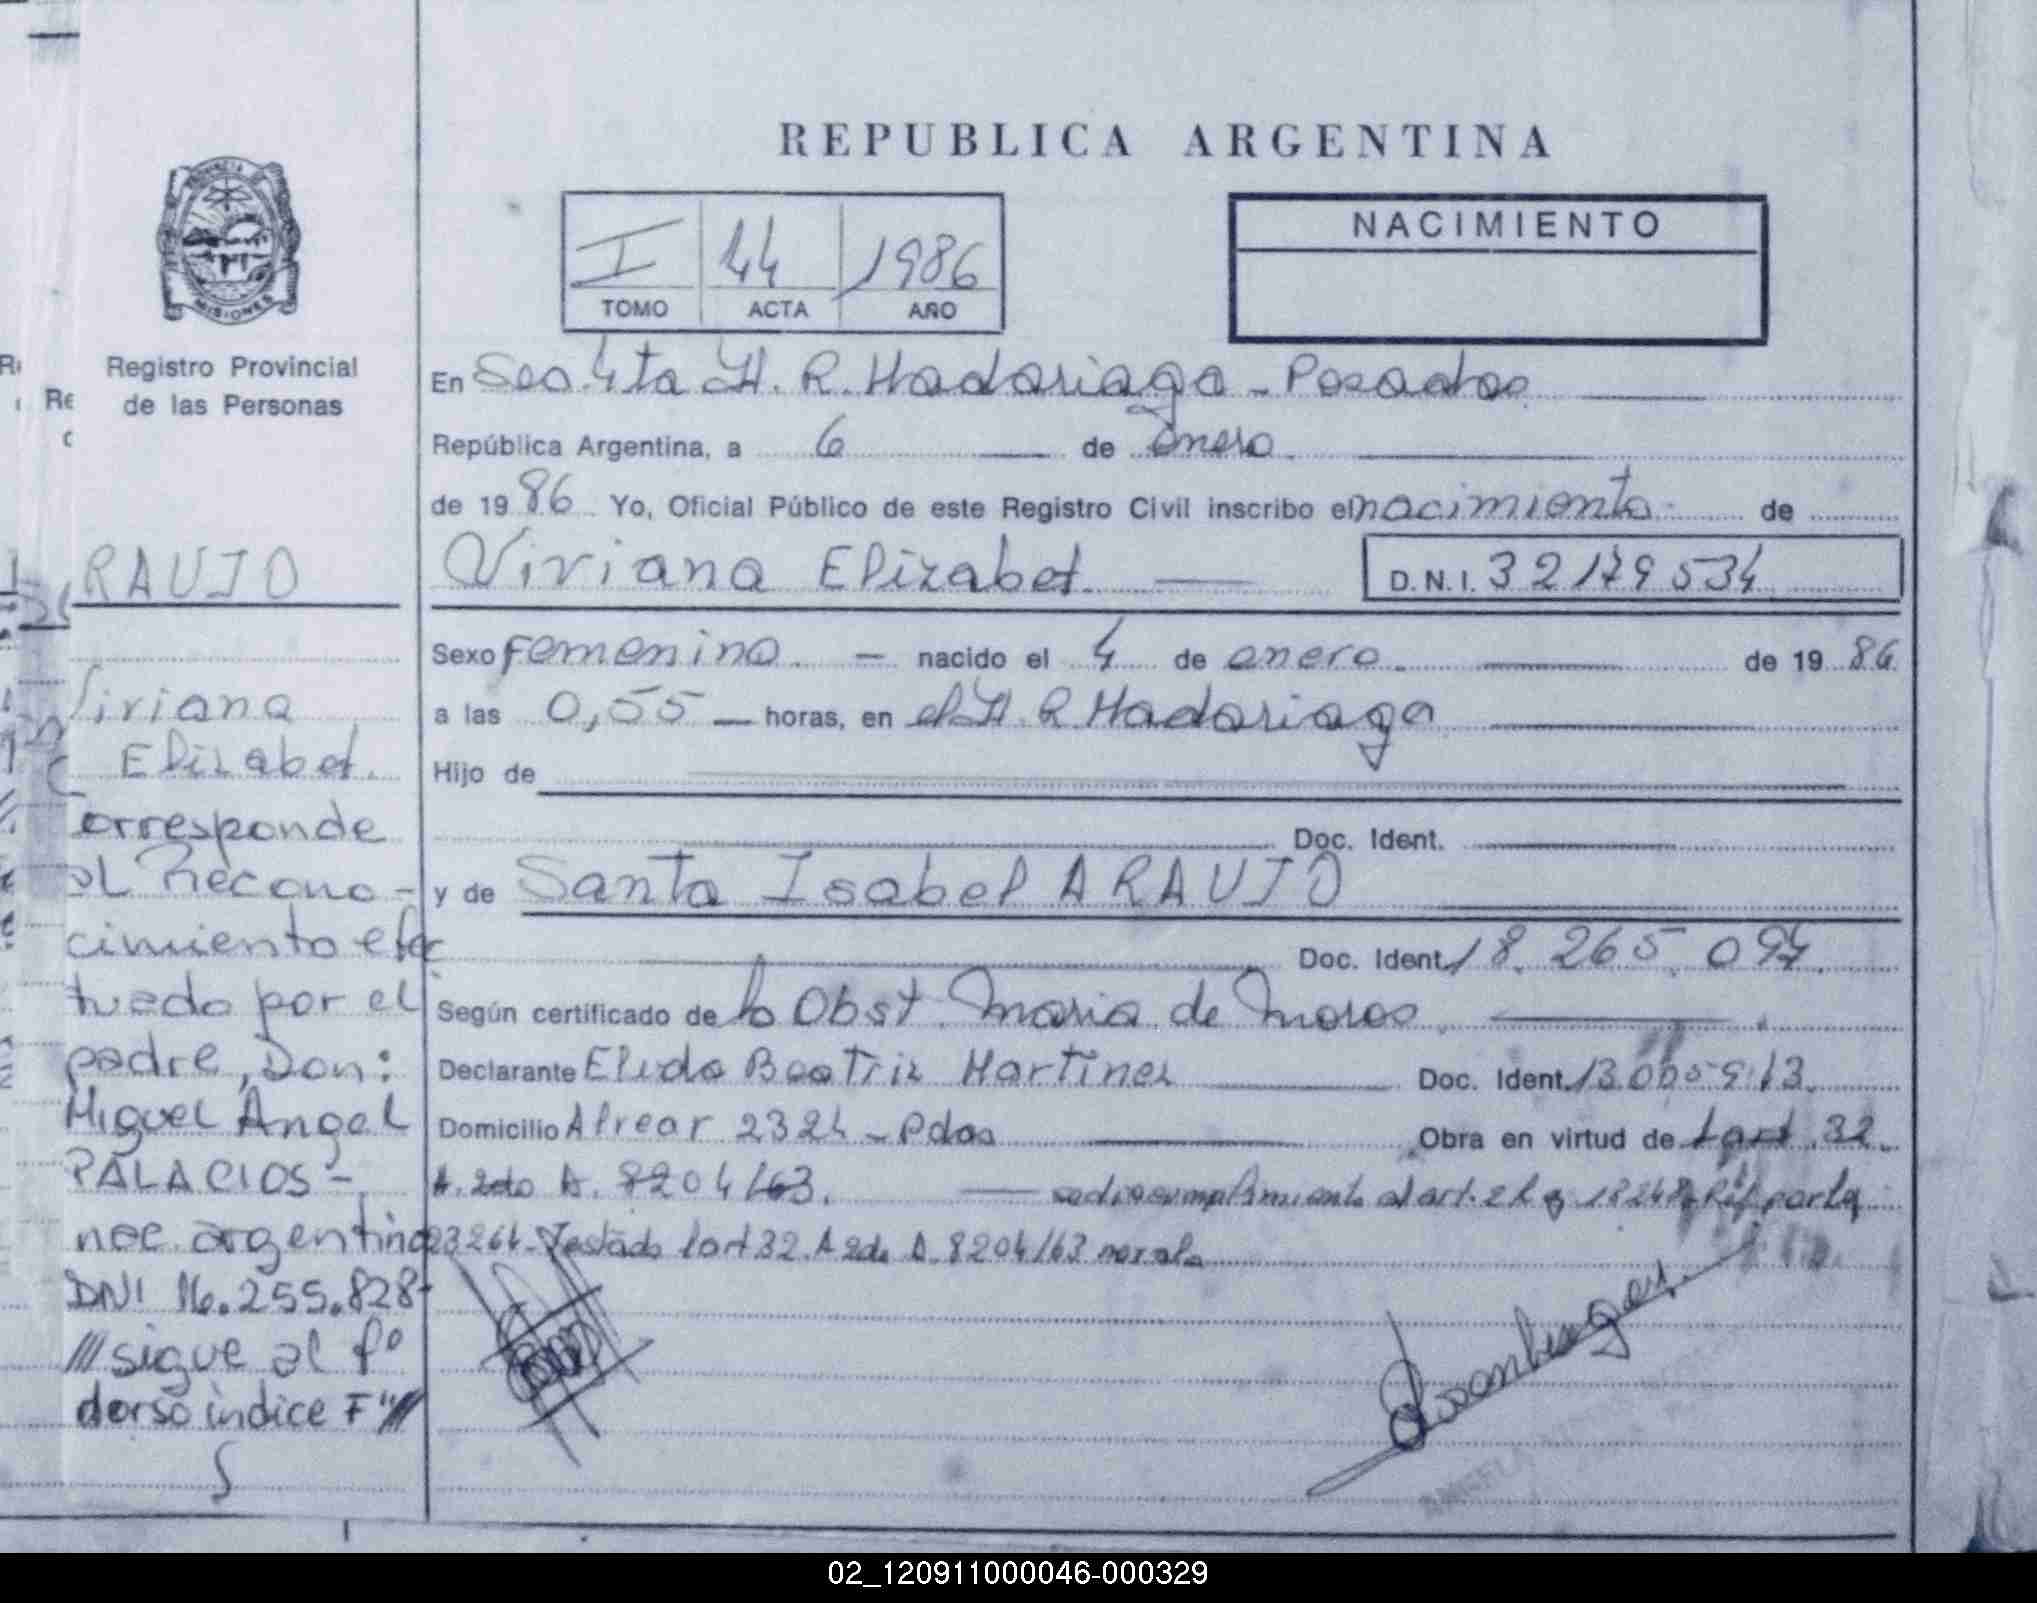 REPUBLICA ARGENTINA
I 44 1986
TOMO ACTA AÑO
NACIMIENTO
PROVINCIA DE
MISIONES
Registro Provincial
de las Personas
En Sec. 4ta H. R. Madariaga - Posadas
República Argentina, a 6 de enero
de 1986 Yo, Oficial Público de este Registro Civil inscribo el nacimiento de
Viviana Elizabet. D.N.I. 32179534
Sexo femenino. nacido el 4 de enero. de 1986
a las 0,55 horas, en el H. R Madariaga
Hijo de
Doc. Ident.
y de Santa Isabel ARAUJO
Doc. Ident. 18.265.094.
Según certificado de la Obst. Maria de Moros
Declarante Elida Beatriz Martinez Doc. Ident.
Domicilio Alvear 2324 - Pdas Obra en virtud de 1 art. 32.
A. 2do D. 8204/63. se dio cumplimiento al art. 2 L 18248 Ref. por Ley
23264. Testado 1 art 32. A 2do D. 8204/63 no vale
RAUJO
Viviana
Elizabet.
Corresponde
al Recono-
cimiento efec
tuado por el
padre, Don:
Miguel Angel
PALACIOS-
nac. argentino
DNI 16.255.828-
///sigue al fº
dorso indice F"///
02_120911000046-000329